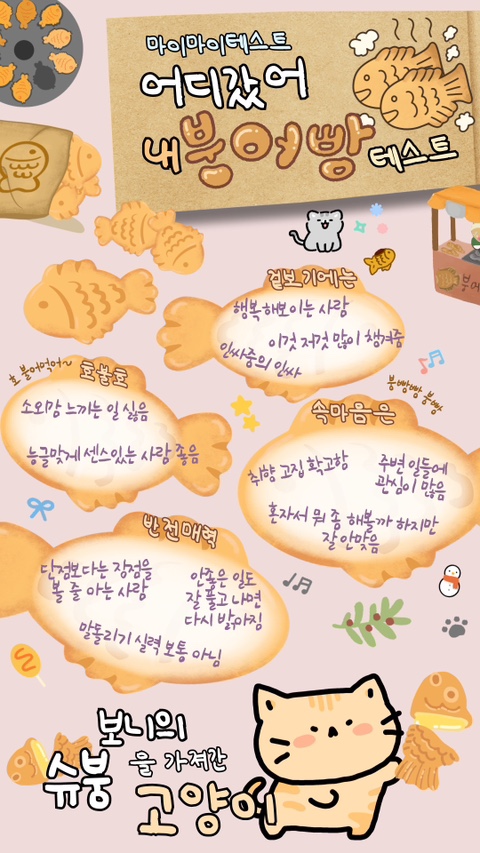 마이마이테스트
어디갔어
내 붕어빵 테스트
겉보기에는
행복해보이는 사람
이것 저것 많이 챙겨줌
인싸중의 인싸
호 불어먹어~
호불호
소외감 느끼는 일 싫음
능글맞게 센스있는 사람 좋음
붕빵빵 붕빵
속마음은
취향 고집 확고함
주변 일들에
관심이 많음
혼자서 뭐 좀 해볼까 하지만
잘 안맞음
반전매력
단점보다는 장점을
볼 줄 아는 사람
안좋은 일도
잘 풀고 나면
다시 밝아짐
말돌리기 실력 보통 아님
보니의
슈붕 을 가져간
고양이